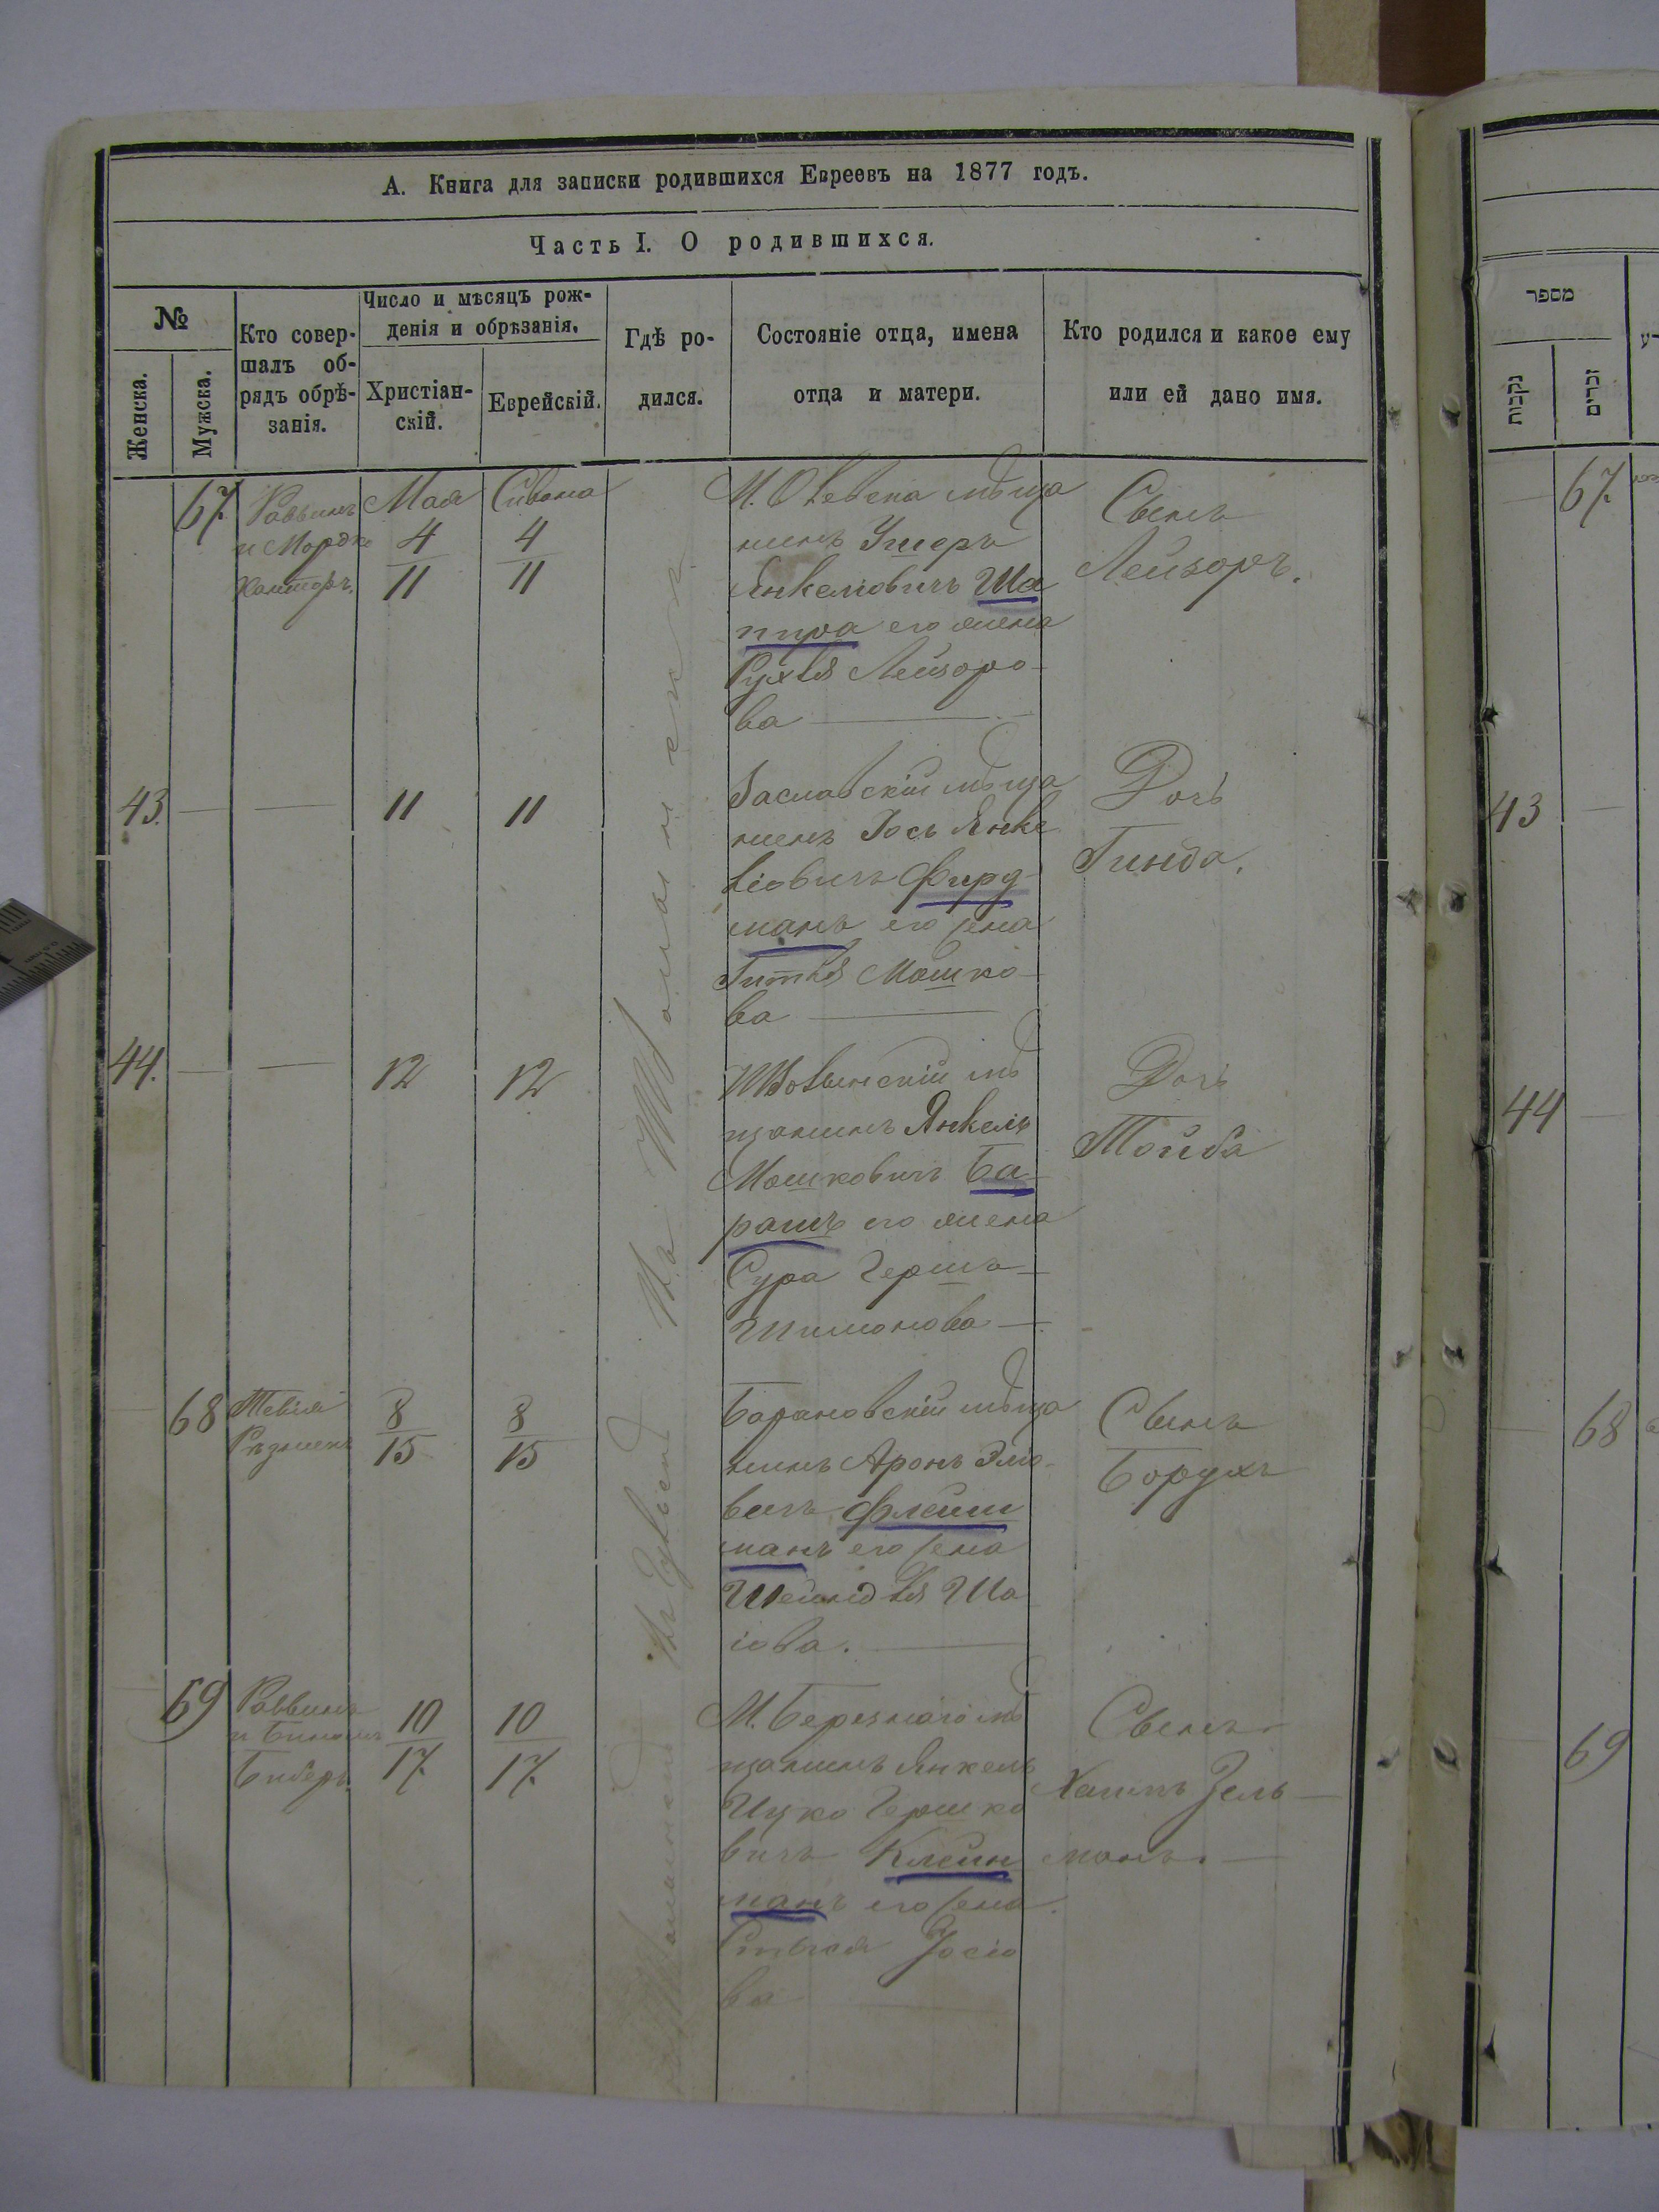 А. Книга для записки родившихся Евреевъ на 1877 годъ.
Часть I. О родившихся.
№
Женска.
Мужска.
Кто совер-
шалъ об-
рядъ обрѣ-
занія.
Число и мѣсяцъ рож-
денія и обрѣзанія.
Христіан-
скій.
Еврейскій.
Гдѣ ро-
дился.
Состояніе отца, имена
отца и матери.
Кто родился и какое ему
или ей дано имя.
67.
Раввинъ
и Мордко
Канторъ.
Мая
4
11
Сивана
4
11
М. Олевска мѣща
нинъ Ушеръ
Янкеліовичъ Ша
пира его жена
Рухля Лейзоро-
ва
Сынъ
Лейзоръ.
43.
11
11
Заславскій мѣща
нинъ Іось Янке
ліовичъ Фирд
манъ его жена
Гитля Мошко-
ва
Дочь
Гинда.
44.
12
12
мѣ
щанинъ Янкель
Мошковичъ Ба-
рашъ его жена
Сура Герша-
Шимонова
Дочь
Тойба
68
Тевія
8
15
8
15
Барановскій мѣща
нинъ Аронъ Эліо-
вичъ Флейш
манъ его жена
Шейндля Ша
іова.
Сынъ
Борухъ
69
Раввинъ
и
10
17.
10
17.
М. Березнаго мѣ
щанинъ Янкель
Ицко Гершко
вичъ Клейн
манъ его жена
Іосіо
ва
Сынъ
Хаимъ Зель-
манъ.
מספר
נקבות
זכרים
67.
43
44
68
69